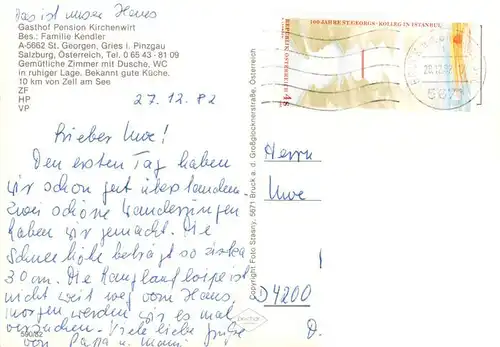 das ist unser Haus
Gasthof Pension Kirchenwirt
Bes.: Familie Kendler
A-5662 St. Georgen, Gries i. Pinzgau
Salzburg, Österreich, Tel. 0 65 43 - 81 09
Gemütliche Zimmer mit Dusche, WC
in ruhiger Lage. Bekannt gute Küche.
10 km von Zell am See
ZF
HP
VP
27.12.82
Lieber Uwe!
Den ersten Tag haben
wir schon gut überstanden.
Zwei schöne Wanderungen
haben wir gemacht. Die
Schneehöhe beträgt so zirka
30 cm. Die Langlaufloipe ist
nicht weit weg vom Haus,
morgen werden wir es mal
versuchen. Viele liebe Grüße
von Papa u. Mami
590/82
Copyright Foto Stasny, 5671 Bruck a. d. Großglocknerstraße, Österreich
100 JAHRE ST. GEORGS-KOLLEG IN ISTANBUL
REPUBLIK ÖSTERREICH
S 4
28.12.82
5671
Herrn
Uwe
D 4200
D.